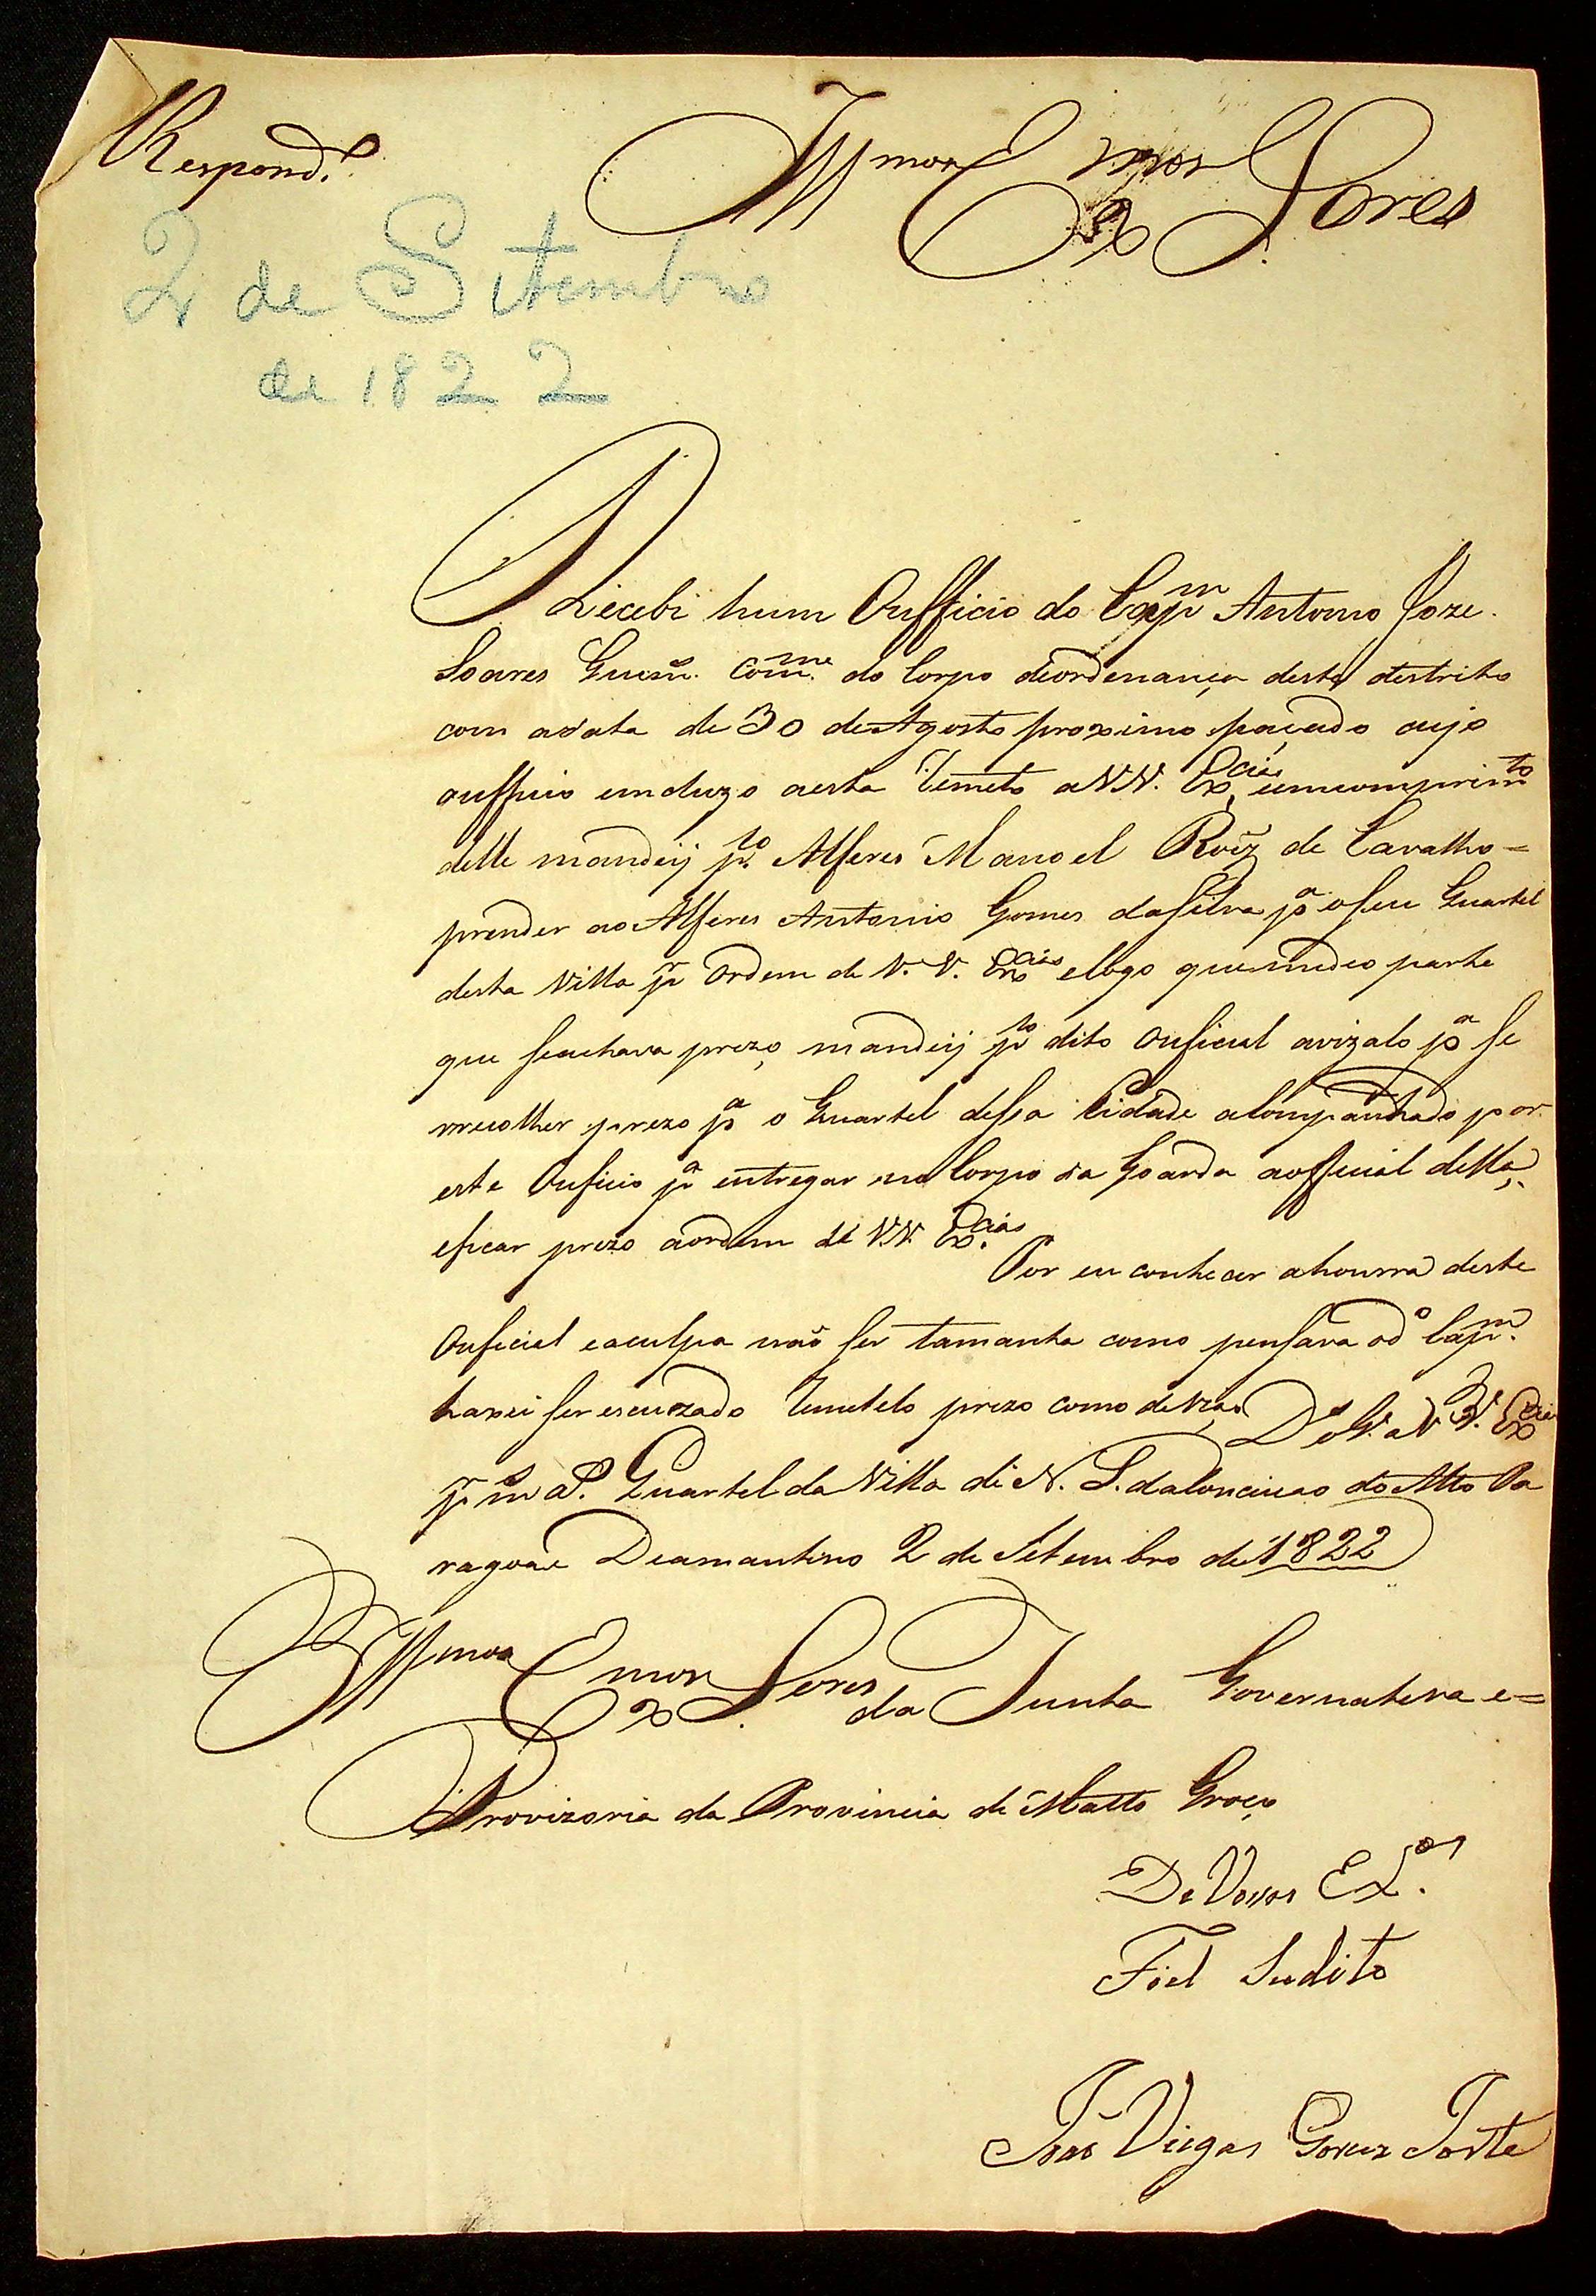 Respond.e
Illmos Exmos Snores
2 de Setembro
de 1822
Recebi hum Oufficio do Capm Antonio Joze
Soares Guem. Comme do Corpo deordenança deste destrito
com adata de 30 de Agosto proximo paçado cujo
oufficio emcluzo aesta Remeto a VV. Excias, eemcomprimto
delle mandeij plo Alferes Manoel Roiz de Carvalho =
prender ao Alferes Antonio Gomes daSilva pa oseu Quartel
desta Villa pr Ordem de V. V. Excias elogo quemedeo parte
que seachava prezo, mandeij plo dito Ouficial avizalo pa se
rrecolher prezo pa o Quartel dessa Cidade acompanhado por
este Ouficio pa entregar no Corpo da Goarda aofficial della,
eficar prezo aordem de VV. Excias.
Por eu conhecer ahounra deste
Ouficial eaculpa naõ ser tamanha como pensava odo Capm.
haxei ser escuzado Remetelo prezo como devera, Ds Ge a V V. Excias
pr ms as. Quartel da Villa de N. S. daConceicao do Alto Pa
ragoae Deamantino 2 de Setembro de 1822
Illmos Exmos Senores da Junta Governativa e =
Provizoria da Provincia de Matto Groço
De Vosas Exas.
Fiel Sudito
João Viegas Forte